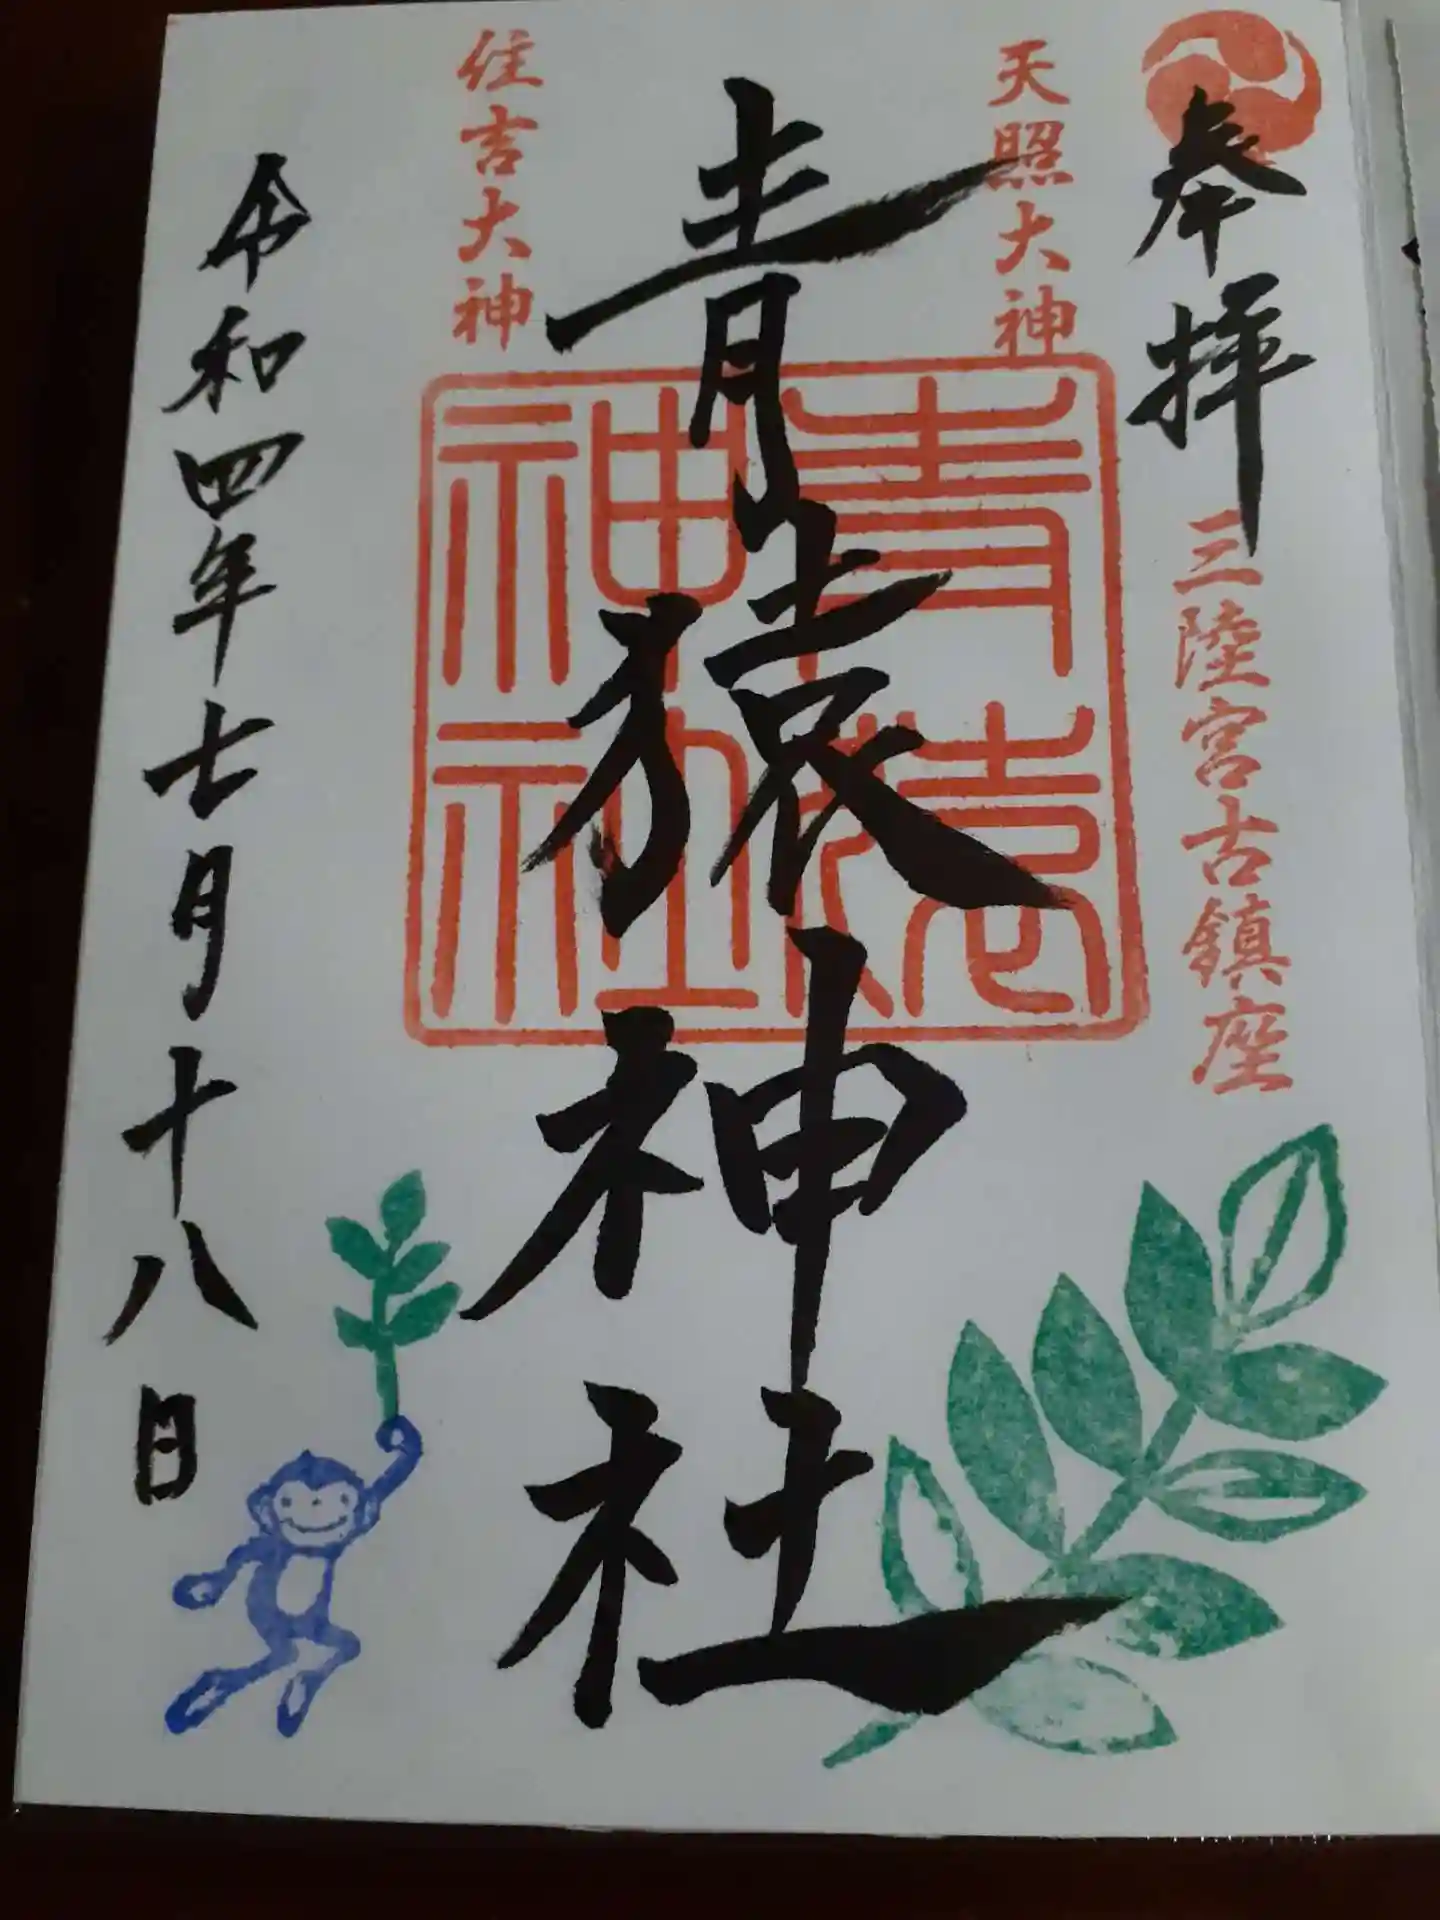 奉拝
三陸宮古鎮座
天照大神
青猿神社
青猿神社
住吉大神
令和四年七月十八日